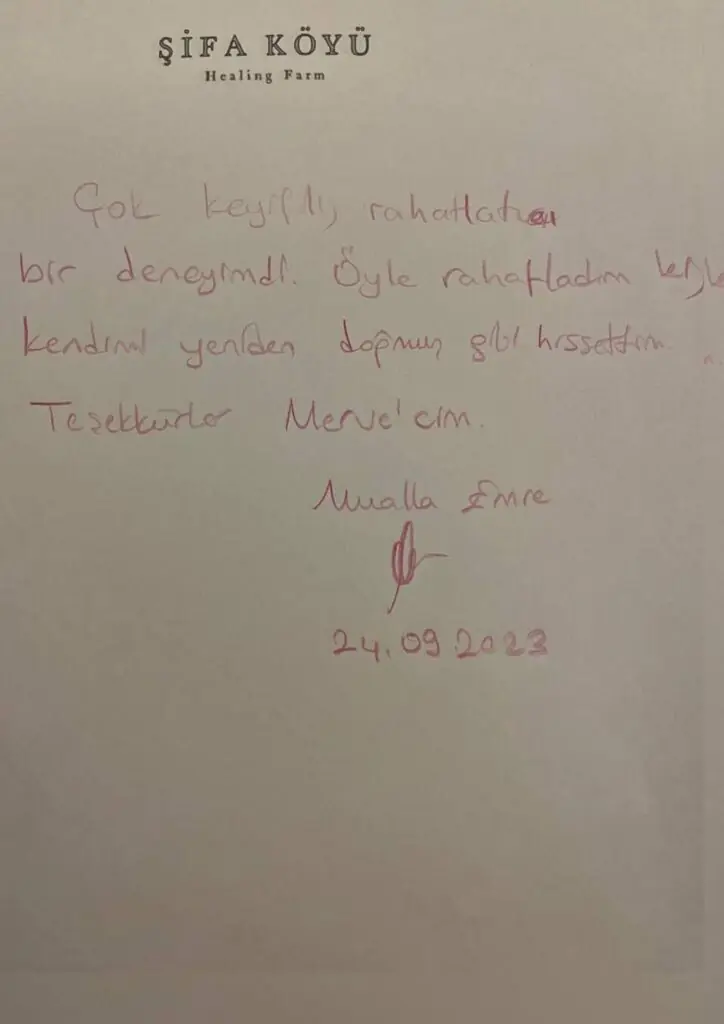 ŞİFA KÖYÜ
Healing Farm
Çok keyifli, rahatlatıcı
bir deneyimdi. Öyle rahatladım
kendimi yeniden doğmuş gibi hissettim.
Teşekkürler Merve'cim.
Mualla Emre
24.09.2023